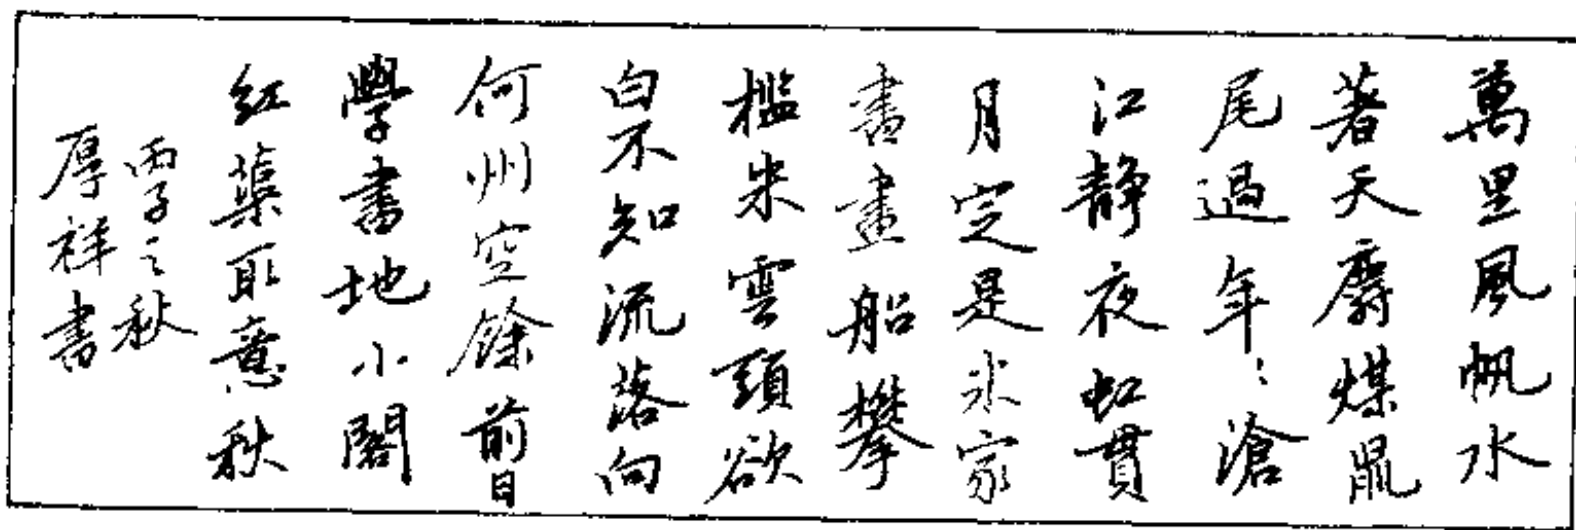 萬里風帆水
著天麝煤鼠
尾過年〻滄
江静夜虹貫
月定是米家
書畫船攀
檻朱雲頭欲
白不知流落向
何州空餘前日
學書地小閣
紅蕖取意秋
丙子之秋
厚祥書